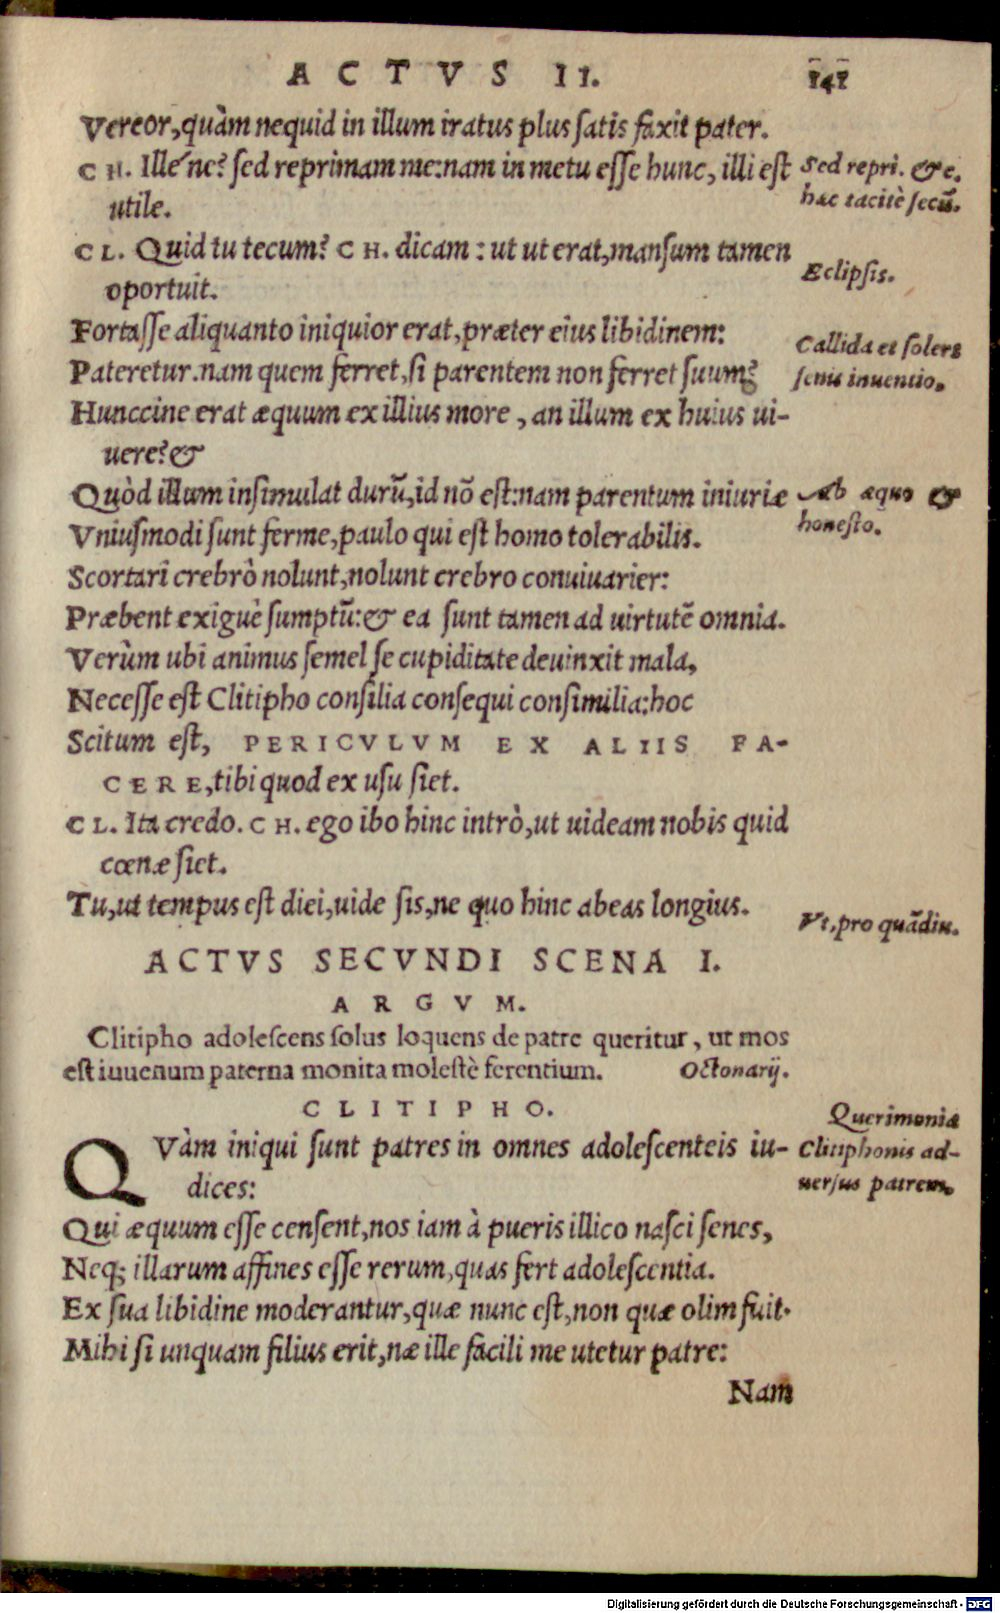 ACTVS II. 141
Vereor,quàm nequid in illum iratus plus satis faxit pater.
CH. Ille´ne? sed reprimam me:nam in metu esse hunc, illi est
utile.
Sed repri. &c.
hac tacitè secū.
CL. Quid tu tecum? CH. dicam : ut ut erat,mansum tamen
oportuit.
Eclipsis.
Fortasse aliquanto iniquior erat,præter eius libidinem:
Pateretur.nam quem ferret,si parentem non ferret suum?
Callida et solers
senis inuentio.
Hunccine erat æquum ex illius more , an illum ex huius ui-
uere?&
Quòd illum insimulat durū,id nō est:nam parentum iniuriæ
Ab æquo &
honesto.
Vniusmodi sunt ferme,paulo qui est homo tolerabilis.
Scortari crebrò nolunt,nolunt crebro conuiuarier:
Præbent exiguè sumptū:& ea sunt tamen ad uirtutē omnia.
Verùm ubi animus semel se cupiditate deuinxit mala,
Necesse est Clitipho consilia consequi consimilia:hoc
Scitum est, PERICVLVM EX ALIIS FA-
CERE,tibi quod ex usu siet.
CL. Ita credo. CH. ego ibo hinc intrò,ut uideam nobis quid
cœnæ siet.
Tu,ut tempus est diei,uide sis,ne quo hinc abeas longius.
Vt,pro quādiu.
ACTVS SECVNDI SCENA I.
ARGVM.
Clitipho adolescens solus loquens de patre queritur, ut mos
est iuuenum paterna monita molestè ferentium. Octonarij.
CLITIPHO.
Querimonia
Clitiphonis ad-
uersus patrem.
QVàm iniqui sunt patres in omnes adolescenteis iu-
dices:
Qui æquum esse censent,nos iam à pueris illico nasci senes,
Neq; illarum affines esse rerum,quas fert adolescentia.
Ex sua libidine moderantur,quæ nunc est,non quæ olim fuit.
Mihi si unquam filius erit,næ ille facili me utetur patre:
Nam
Digitalisierung gefördert durch die Deutsche Forschungsgemeinschaft - DFG